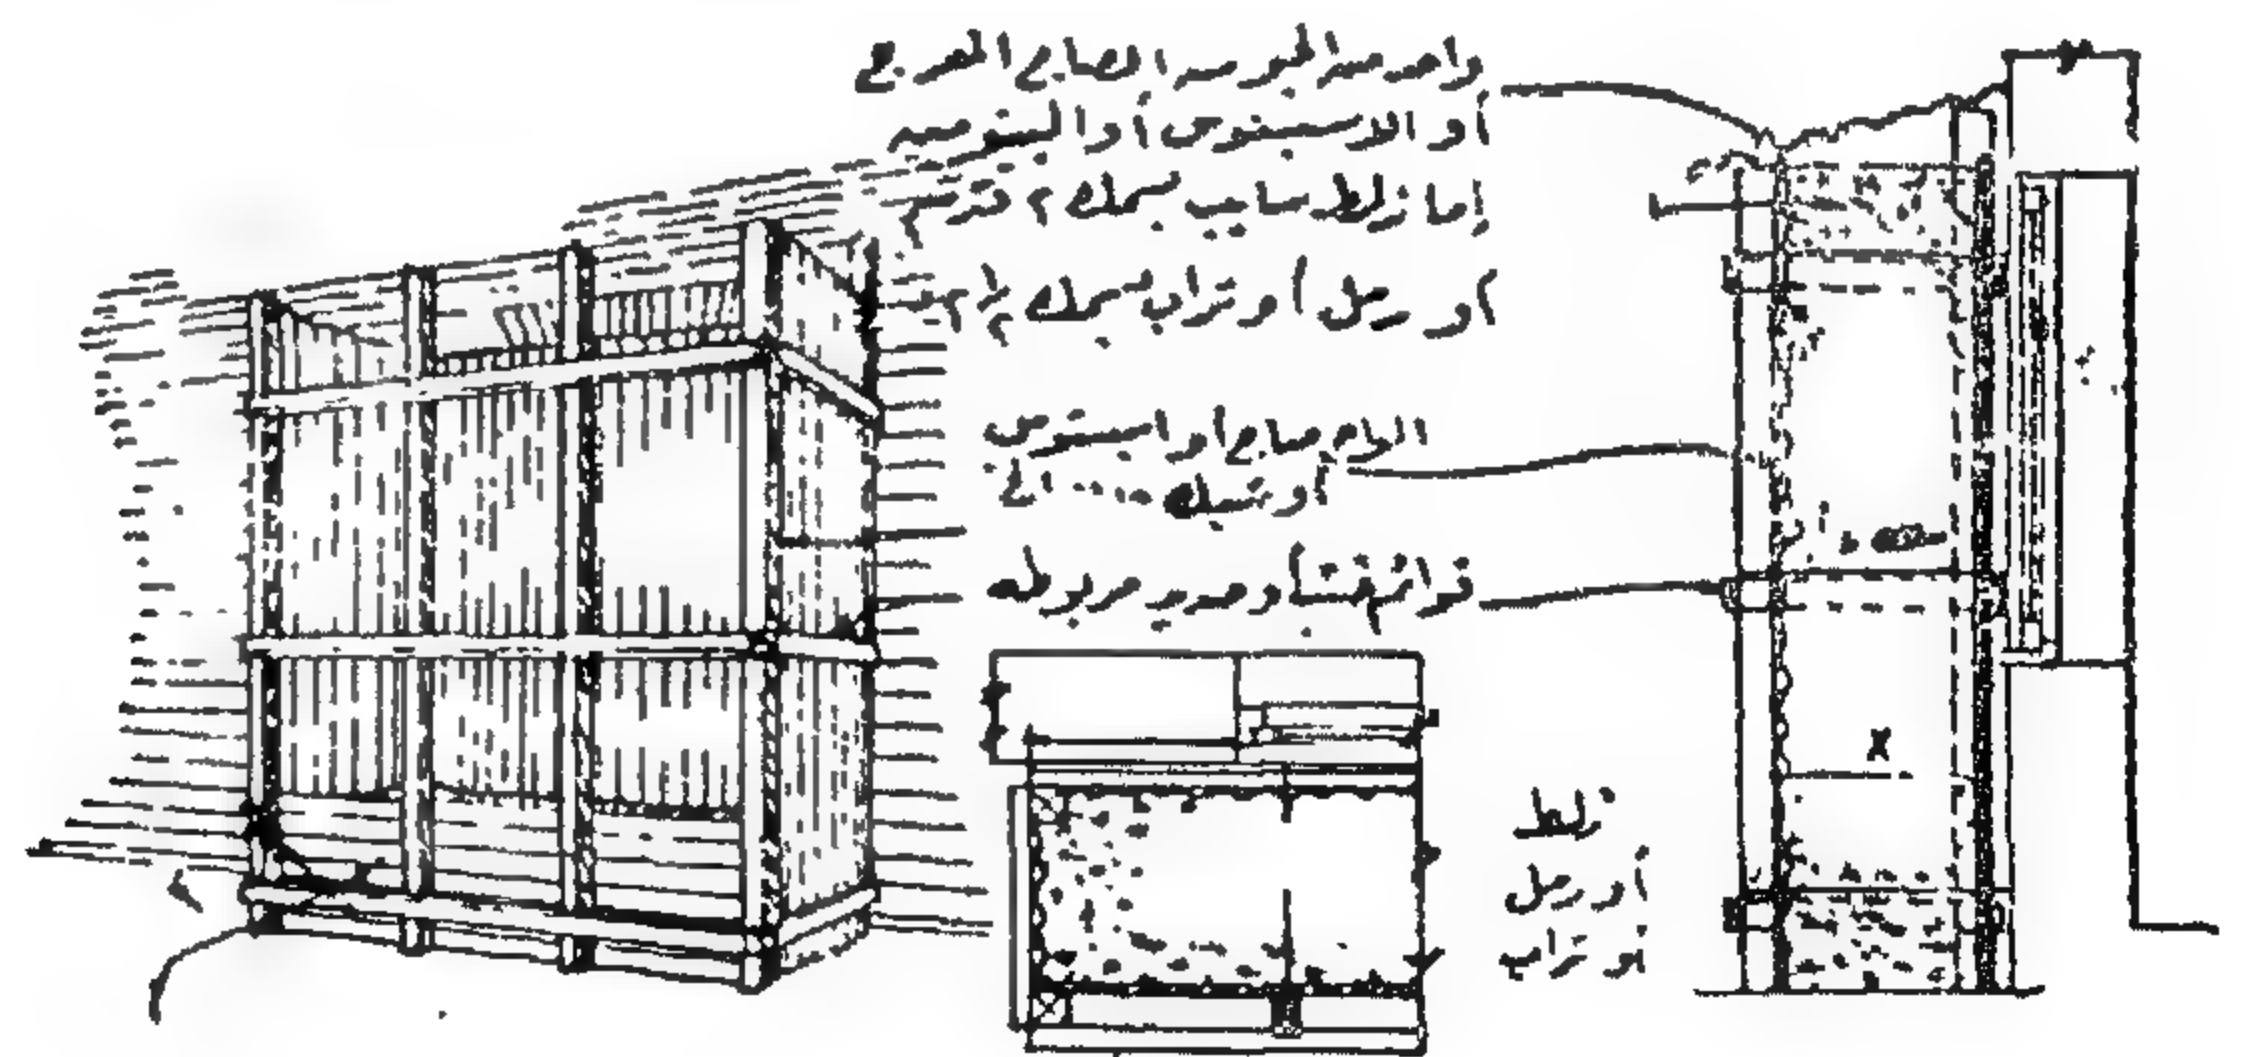 واحد من الجبس الصاج المعرج
أو الاسبستوس أو البيتومين
إما زلط سايب بسمك ٢ قدم
أو رمل أو تراب بسمك ٢ ١/٢
الواح صاج أو اسبستوس
أو شبك .... الخ
قوائم خشب أو حديد مربوطه
X
زلط
أو رمل
أو تراب